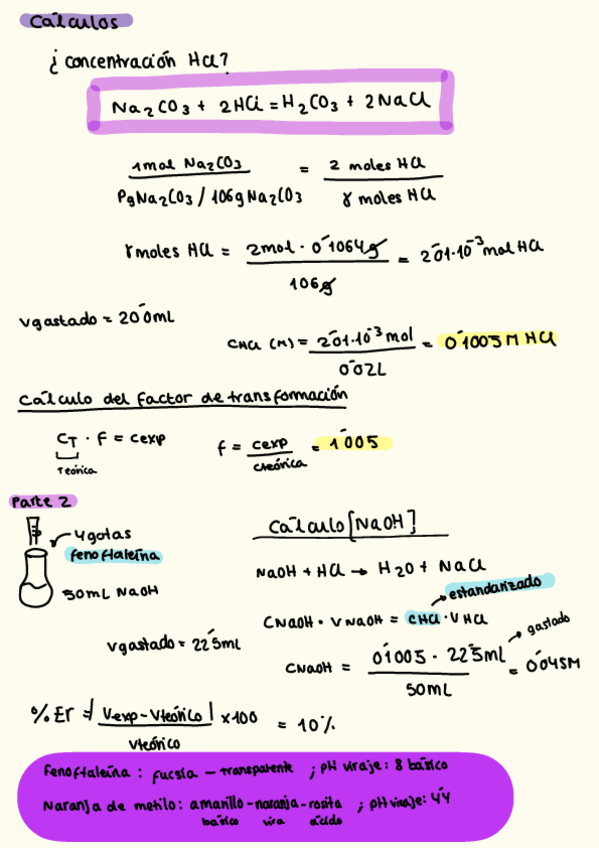 Cálculos
¿concentración HCl?
Na2CO3 + 2HCl = H2CO3 + 2NaCl
1mol Na2CO3 / PgNa2CO3 / 106g Na2CO3 = 2 moles HCl / γ moles HCl
γ moles HCl = 2mol · 0'1064g / 106g = 2'01·10^-3 mol HCl
Vgastado = 20'0mL
CHCl (M) = 2'01·10^-3 mol / 0'02L = 0'1005 M HCl
Cálculo del factor de transformación
CT · F = Cexp
Teórica
f = Cexp / Cteórica = 1'005
Parte 2
4gotas
fenoftaleína
50mL NaOH
Cálculo [NaOH]
NaOH + HCl → H2O + NaCl
estandarizado
CNaOH · VNaOH = CHCl · VHCl
gastado
Vgastado = 22'5mL
CNaOH = 0'1005 · 22'5mL / 50mL = 0'045M
% Er = | Vexp - Vteórico / Vteórico | x100 = 10%
Fenoftaleína : fucsia - transparente ; pH viraje: 8 básico
Naranja de metilo: amarillo - naranja - rosita ; pH viraje: 4'4
básico vira ácido